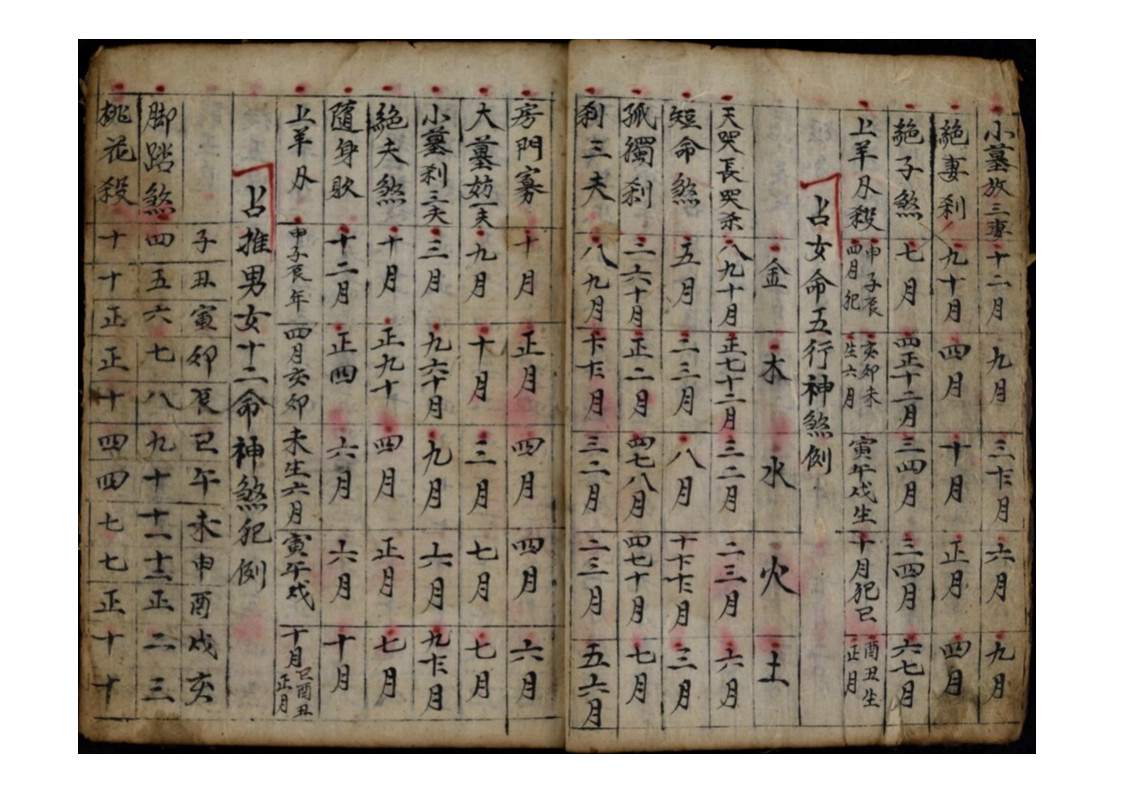 小墓放三妻 十二月 九月 三十二月 六月 九月
絕妻刹 九十月 四月 十月 正月 四月
絕子煞 七月 正十二月 三四月 三四月 六七月
上羊刃殺 申子辰四月犯 亥卯未生六月 寅午戌生 十月犯巳 酉丑生正月
占女命五行神煞例
金 木 水 火 土
天哭長哭杀 八九十月 正七十二月 三二月 二三月 六月
短命煞 五月 三三月 八月 三月
孤獨刹 二六十月 正二月 四七八月 四七十月 七月
刹三夫 八九月 三二月 二三月 五六月
房門寡 十月 正月 四月 四月 六月
大墓妨一夫 九月 十月 三月 七月 七月
小墓刹三夫 三月 九六十月 九月 六月 九十二月
絕夫煞 十月 正九十 四月 正月 七月
隨身耿 十二月 正四 六月 六月 十月
上羊刃 申子辰年 四月亥卯 未生六月 寅午戌 十月巳酉丑正月
占推男女十二命神煞犯例
子丑寅卯辰巳午未申酉戌亥
脚踏煞 四五六七八九十十一十二正二三
桃花殺 十十正正十四四七七正十十